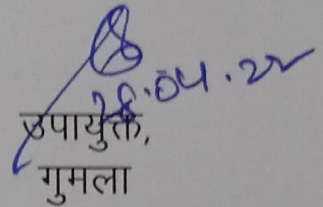 28.04.22
उपायुक्त,
गुमला